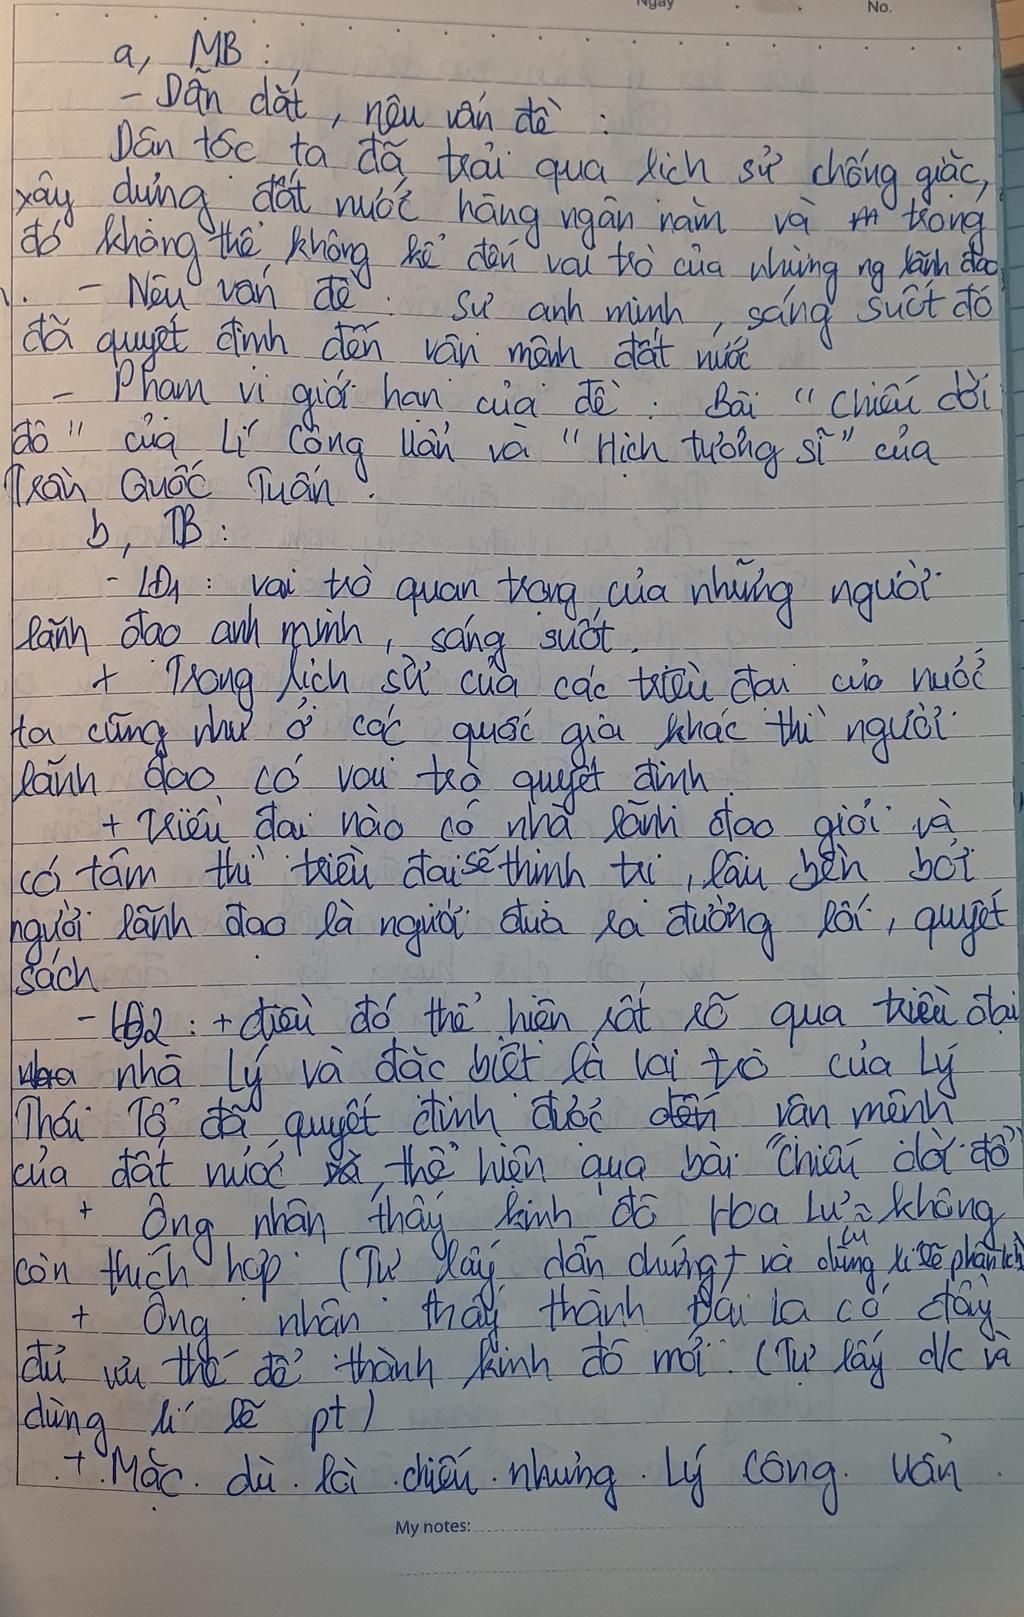 Ngày
No.
a, MB :
- Dẫn dắt, nêu vấn đề :
Dân tộc ta đã trải qua lịch sử chống giặc,
xây dựng đất nước hàng ngàn năm và trong
đó không thể không kể đến vai trò của những ng lãnh đạo
- Nêu vấn đề : Sự anh minh, sáng suốt đó
đã quyết định đến vận mệnh đất nước
- Phạm vi giới hạn của đề : Bài "Chiếu dời
đô" của Lí Công Uẩn và "Hịch tướng sĩ" của
Trần Quốc Tuấn.
b, TB :
- LĐ1 : vai trò quan trọng của những người
lãnh đạo anh minh, sáng suốt.
+ Trong lịch sử của các triều đại của nước
ta cũng như ở các quốc gia khác thì người
lãnh đạo có vai trò quyết định.
+ Triều đại nào có nhà lãnh đạo giỏi và
có tâm thì triều đại sẽ thịnh trị, lâu bền bởi
người lãnh đạo là người đưa ra đường lối, quyết
sách
- LĐ2 : + điều đó thể hiện rất rõ qua triều đại
nhà Lý và đặc biệt là vai trò của Lý
Thái Tổ đã quyết định được đến vận mệnh
của đất nước, thể hiện qua bài "Chiếu dời đô"
+ Ông nhận thấy kinh đô Hoa Lư không
còn thích hợp (Tự lấy dẫn chứng và dùng lí lẽ phân tích)
+ Ông nhận thấy thành Đại la có đầy
đủ ưu thế để thành kinh đô mới. (Tự lấy d/c và
dùng lí lẽ pt)
+ Mặc dù là chiếu nhưng Lý Công Uẩn
My notes: